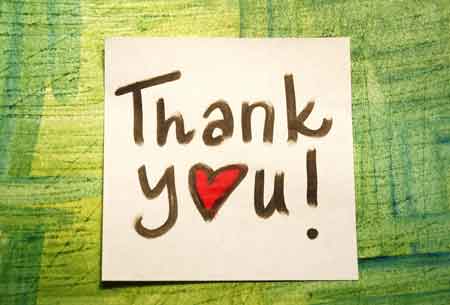 Thank
y❤u!